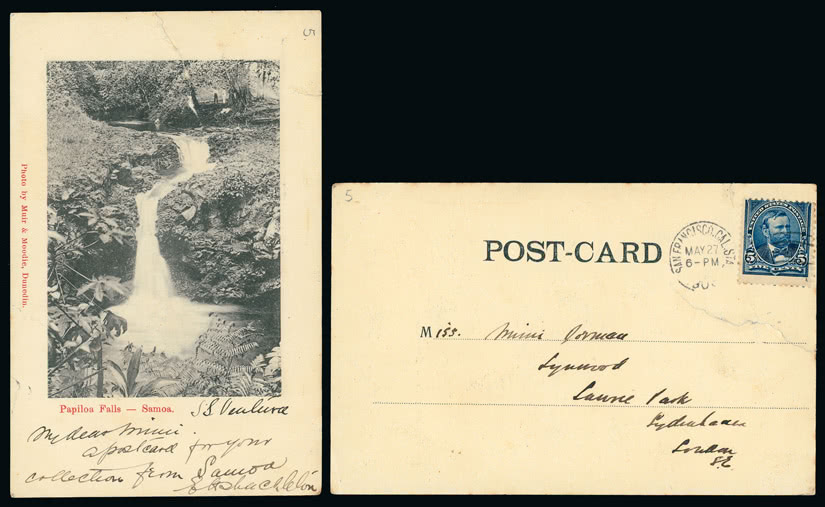 5
Photo by Muir & Moodie, Dunedin.
Papiloa Falls — Samoa.
SS Ventura
My dear Mimi.
a postcard for your
collection from Samoa
E H Shackleton
5
POST-CARD
SAN FRANCISCO, CAL. STA
MAY 27
6-PM
UNITED STATES POSTAGE
5 5
FIVE CENTS
Miss. Mimi Dorman
Lynwood
Laurie Park
Sydenham
London
S.E